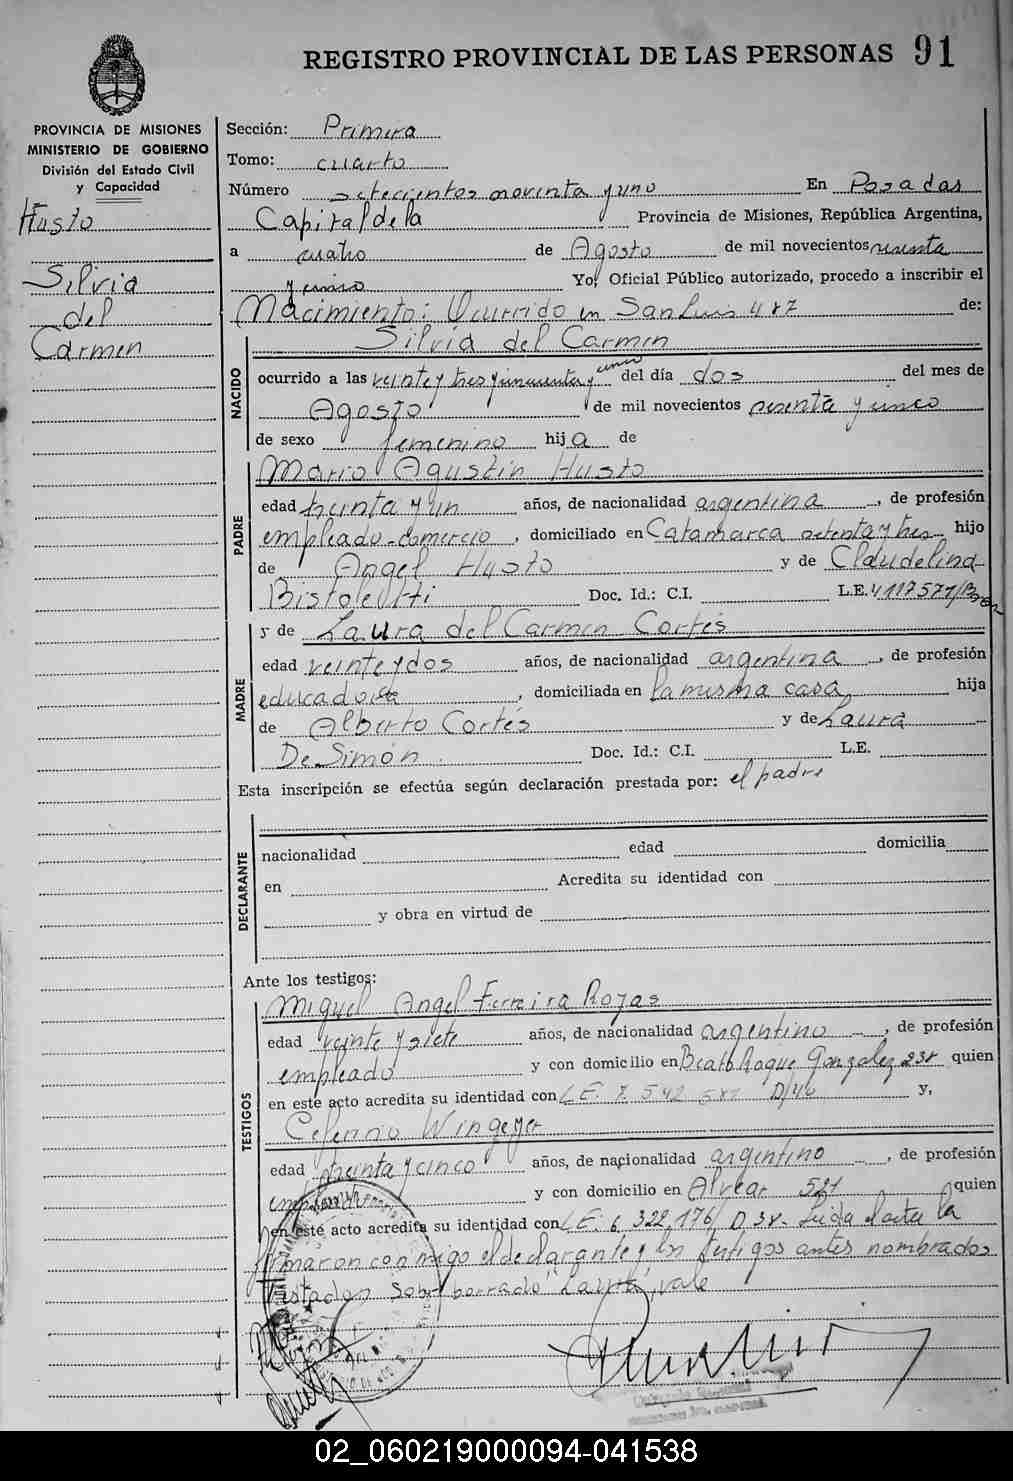 REGISTRO PROVINCIAL DE LAS PERSONAS 91
PROVINCIA DE MISIONES
MINISTERIO DE GOBIERNO
División del Estado Civil
y Capacidad
Husto
Silvia
del
Carmen
Sección: Primera
Tomo: cuarto
Número setecientos noventa y uno En Posadas
Capital de la Provincia de Misiones, República Argentina,
a cuatro de Agosto de mil novecientos
Yo, Oficial Público autorizado, procedo a inscribir el
Nacimiento: Ocurrido en San Luis 487 de:
Silvia del Carmen
NACIDO
ocurrido a las veinte y tres y cincuenta y cinco del día dos del mes de
Agosto de mil novecientos y cinco
de sexo femenino hija de
Mario Agustín Husto
PADRE
edad treinta y un años, de nacionalidad argentina, de profesión
empleado-comercio, domiciliado en Catamarca setenta y tres hijo
de Angel Husto y de Claudelina
Bistoletti Doc. Id.: C.I. L.E. 4117577
y de Laura del Carmen Cortés
MADRE
edad veinte y dos años, de nacionalidad argentina, de profesión
educadora, domiciliada en la misma casa hija
de Alberto Cortés y de Laura
De Simón Doc. Id.: C.I. L.E.
Esta inscripción se efectúa según declaración prestada por: el padre
DECLARANTE
nacionalidad edad domicilia
en Acredita su identidad con
y obra en virtud de
Ante los testigos:
TESTIGOS
Miguel Angel Ferreira Rojas
edad veinte y siete años, de nacionalidad argentino, de profesión
empleado y con domicilio en Beato Roque Gonzalez 238 quien
en este acto acredita su identidad con L.E. 7.542.587 D/46 y,
Ceferino Wingeyer
edad treinta y cinco años, de nacionalidad argentino, de profesión
empleado y con domicilio en Alvear 521 quien
en este acto acredita su identidad con L.E. 6.322.176 D 38. Leida el acta la
firmaron conmigo el declarante y los testigos antes nombrados
Sobre borrado "Laura", vale
02_060219000094-041538